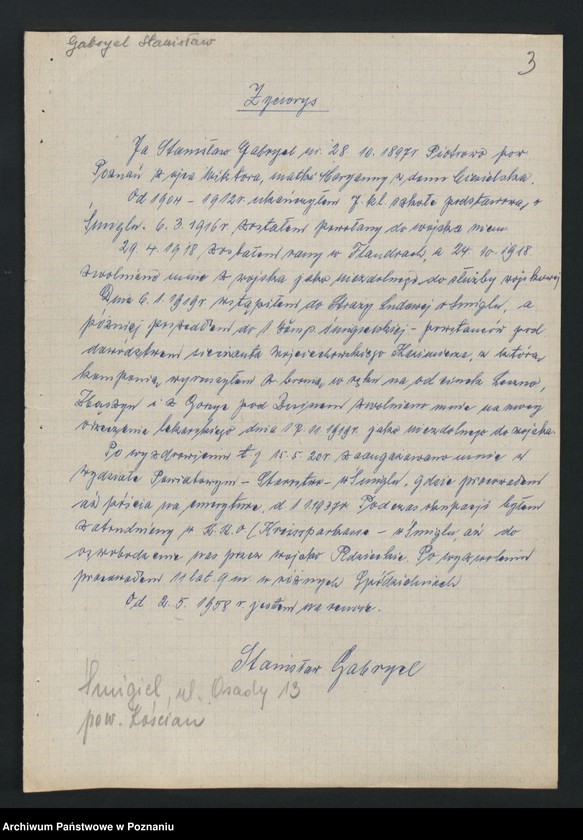 Gabryel Stanisław
3
Życiorys
Ja Stanisław Gabryel ur. 28. 10. 1897r Piotrowo pow
Poznań z ojca Wiktora, matki Maryanny z domu
Od 1904 – 1912r ukończyłem 7. kl. szkołe podstawową, w
Śmiglu. 6. 3. 1916r. zostałem powołany do wojska niem
29. 4. 1918 zostałem ranny w Flandrach, a 24. 10. 1918
zwolniono mnie z wojska jako niezdolnego do służby wojskowej
Dnia 6. 1. 1919r. wstąpiłem do Straży Ludowej w Śmiglu, a
później poszedłem do 1 komp śmigielskiej – powstańców pod
dowództwem sierżanta Wojciechowskiego Kazimierza, z którą
kompanią wyruszyłem z bronią w ręku na odcinek Leszno,
i z pod zwolniono mnie na mocy
orzeczenia lekarskiego dnia 17. 11. 1919r. jako niezdolnego do wojska.
Po wyzdrowieniu t. j 15. 5. 20r zaangażowano mnie w
Wydziale Powiatowym – Starostwo – w Śmiglu, gdzie pracowałem
aż pójścia na emeryturę, d 1 1. 1937r. Podczas okupacji byłem
zatrudniony w K. K. O (Kreissparkasse – w Śmiglu, aż do
oswobodzenia nas przez wojska Radzieckie. Po wyzwoleniu
pracowałem 11 lat 9 m. w różnych Spółdzielniach
Od 2. 5. 1958 r. jestem na rencie.
Stanisław Gabryel
Śmigiel, ul. Osady 13
pow. Kościan
Archiwum Państwowe w Poznaniu